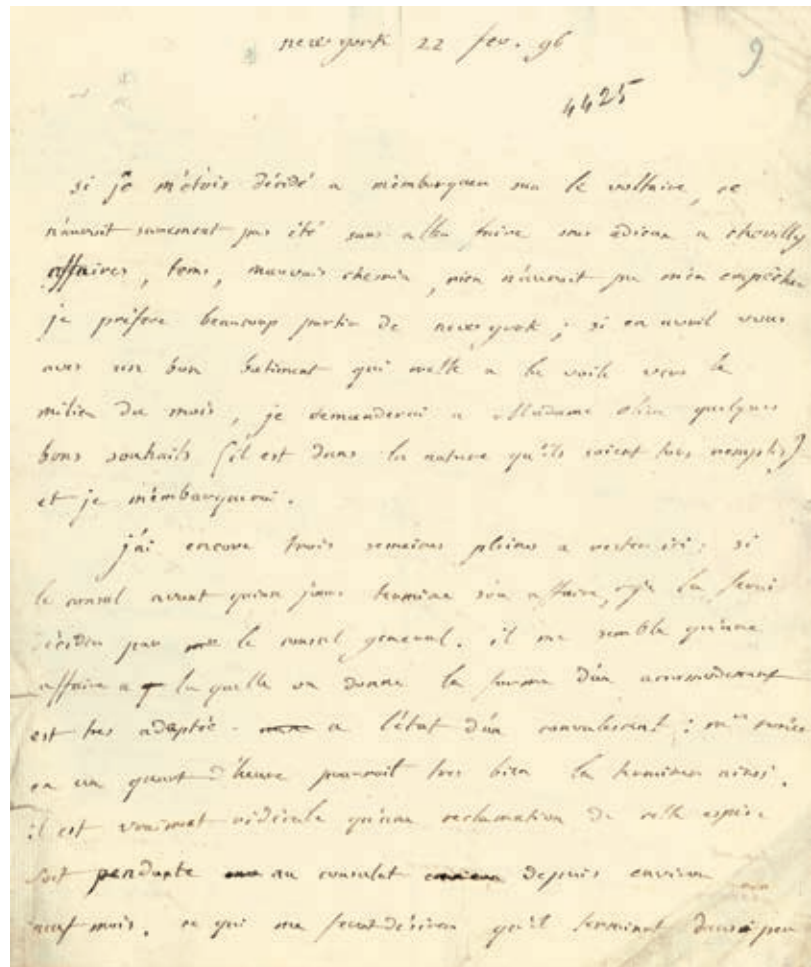 new york 22 fev. 96
9
4425
si je m'étois décidé a m'embarquer sur le voltaire, ce
n'auroit surement pas été sans aller faire mes adieux a chevilly
affaires, tems, mauvais chemin, rien n'auroit pu m'en empêcher
je préfere beaucoup partir de new york; si en avril vous
aves un bon batiment qui mette a la voile vers le
milieu du mois, je demanderai a Madame olive quelques
bons souhaits (il est dans la nature qu'ils soient tous remplis)
et je m'embarquerai.
j'ai encore trois semaines pleines a rester ici; si
le consul avant quinze jours termine son affaire, je la ferai
décider par le consul general. il me semble qu'une
affaire a la quelle on donne la forme d'un accommodement
est tres adaptée a l'état d'un convalescent: mr
en un quart d'heure pourroit tres bien la terminer ainsi.
il est vraiment ridicule qu'une reclamation de cette espece
soit pendante au consulat depuis environ
neuf mois. ce qui me feroit désirer qu'il terminat dans peu